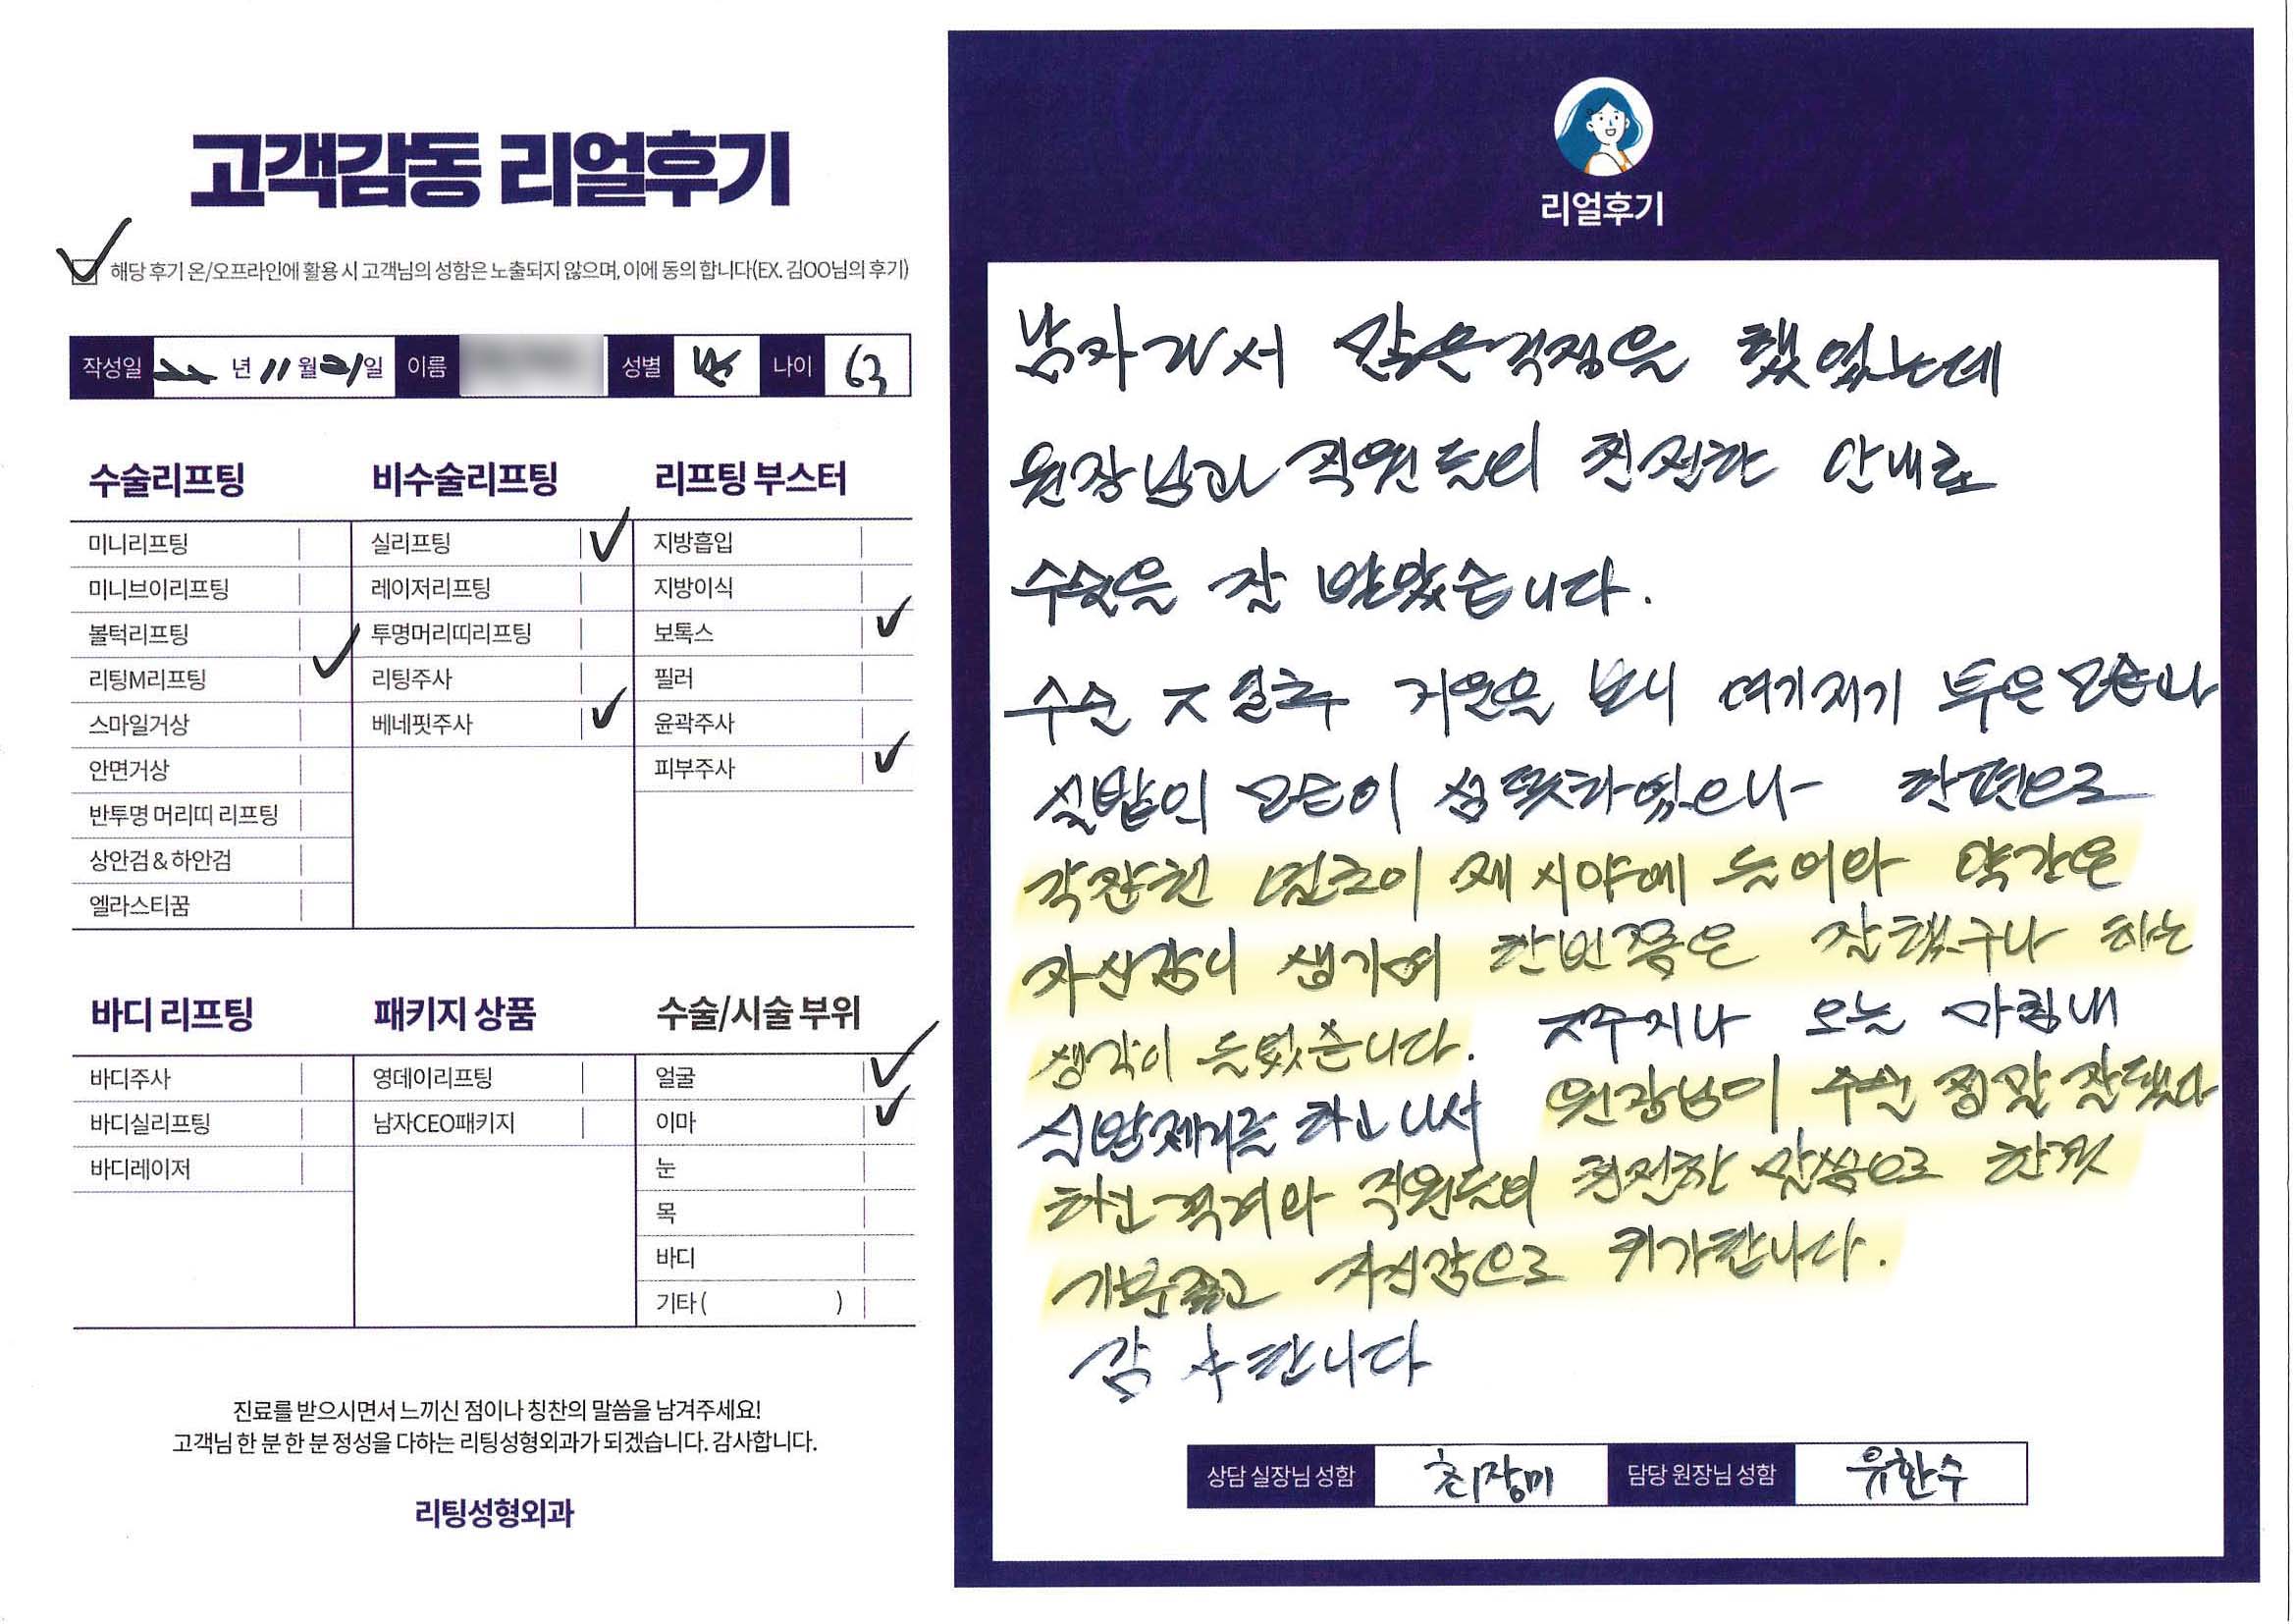 고객감동 리얼후기
해당 후기 온/오프라인에 활용 시 고객님의 성함은 노출되지 않으며, 이에 동의 합니다(EX. 김OO님의 후기)
작성일 22년 11월 21일 이름 성별 남 나이 63
수술리프팅
미니리프팅
미니브이리프팅
볼턱리프팅
리팅M리프팅
스마일거상
안면거상
반투명 머리띠 리프팅
상안검 & 하안검
엘라스티꿈
비수술리프팅
실리프팅
레이저리프팅
투명머리띠리프팅
리팅주사
베네핏주사
리프팅 부스터
지방흡입
지방이식
보톡스
필러
윤곽주사
피부주사
바디 리프팅
바디주사
바디실리프팅
바디레이저
패키지 상품
영데이리프팅
남자CEO패키지
수술/시술 부위
얼굴
이마
눈
목
바디
기타 ( )
진료를 받으시면서 느끼신 점이나 칭찬의 말씀을 남겨주세요!
고객님 한 분 한 분 정성을 다하는 리팅성형외과가 되겠습니다. 감사합니다.
리팅성형외과
리얼후기
남자라서 많은걱정을 했었는데
원장님과 직원들의 친절한 안내로
수술을 잘 받았습니다.
수술 첫 거울을 보니 여기저기 부은 모습과
실밥의 모습이 섬뜩하였으나 한편으로
각잡힌 턱선이 제 시야에 들어와 약간은
자신감이 생기며 한번쯤은 잘했구나 하는
생각이 들었습니다. 지나 오늘 마침내
실밥제거를 하고나서 원장님이 수술 정말 잘됐다
하고 격려와 직원들의 친절한 말씀으로 한껏
기분좋고 자신감으로 귀가합니다.
감사합니다
상담 실장님 성함 최장미 담당 원장님 성함 유한수